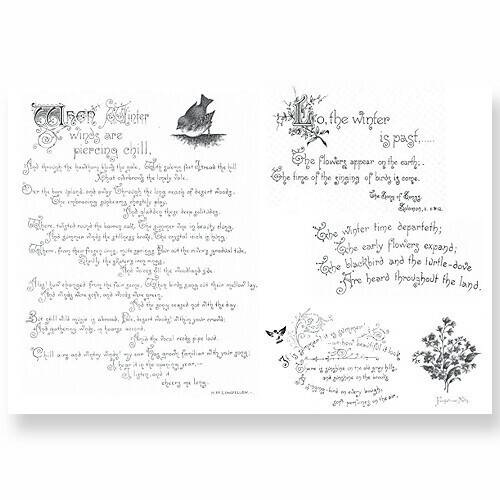 When Winter
winds are
piercing chill,
And through the hawthorn blows the gale, With solemn feet I tread the hill
That overbrows the lonely vale.
O'er the bare upland, and away Through the long reach of desert woods,
The embracing sunbeams chastely play,
And gladden these deep solitudes.
Where, twisted round the barren oak, The summer vine in beauty clung,
And summer winds the stillness broke, The crystal icicle is hung.
Where, from their frozen urns, mute springs Pour out the river's gradual tide,
Shrilly the skater's iron rings,
And voices fill the woodland side.
Alas! how changed from the fair scene, When birds sang out their mellow lay,
And winds were soft, and woods were green,
And the song ceased not with the day.
But still wild music is abroad, Pale, desert woods! within your crowd;
And gathering winds, in hoarse accord,
Amid the vocal reeds pipe loud.
Chill airs and wintry winds! my ear Has grown familiar with your song;
I hear it in the opening year,—
I listen, and it
cheers me long.
H.W. LONGFELLOW.
Lo, the winter
is past,.....
The flowers appear on the earth:
The time of the singing of birds is come.
The Song of Songs.
Solomon,
The winter time departeth;
The early flowers expand;
The blackbird and the turtle-dove
Are heard throughout the land.
It is summer! it is summer!
how beautiful it looks
There is sunshine on the old grey hills,
and sunshine on the brooks,
A singing-bird on every bough,
soft perfumes on the air,